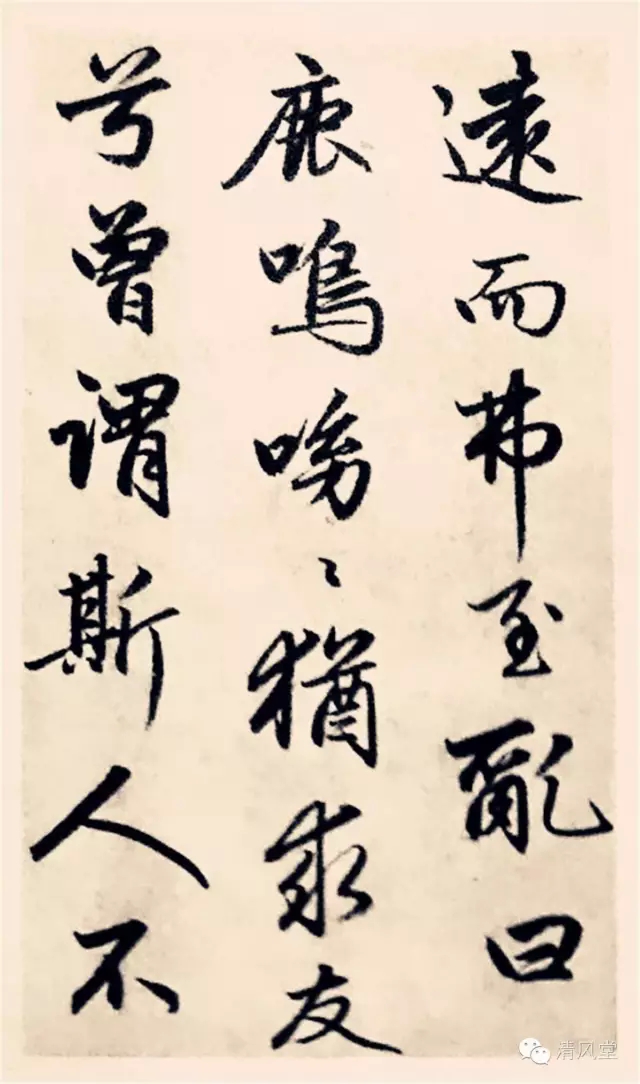 遠而弗至亂曰
鹿鳴呦〻猶求友
兮曾謂斯人不
清风堂